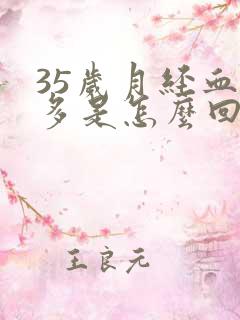 35歲月経血
多是怎麼回
王良元